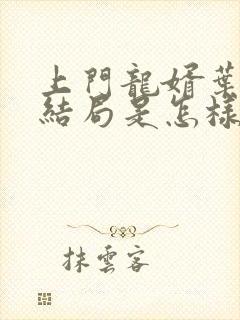 上門龍婿葉
結局是怎樣
抹雲客